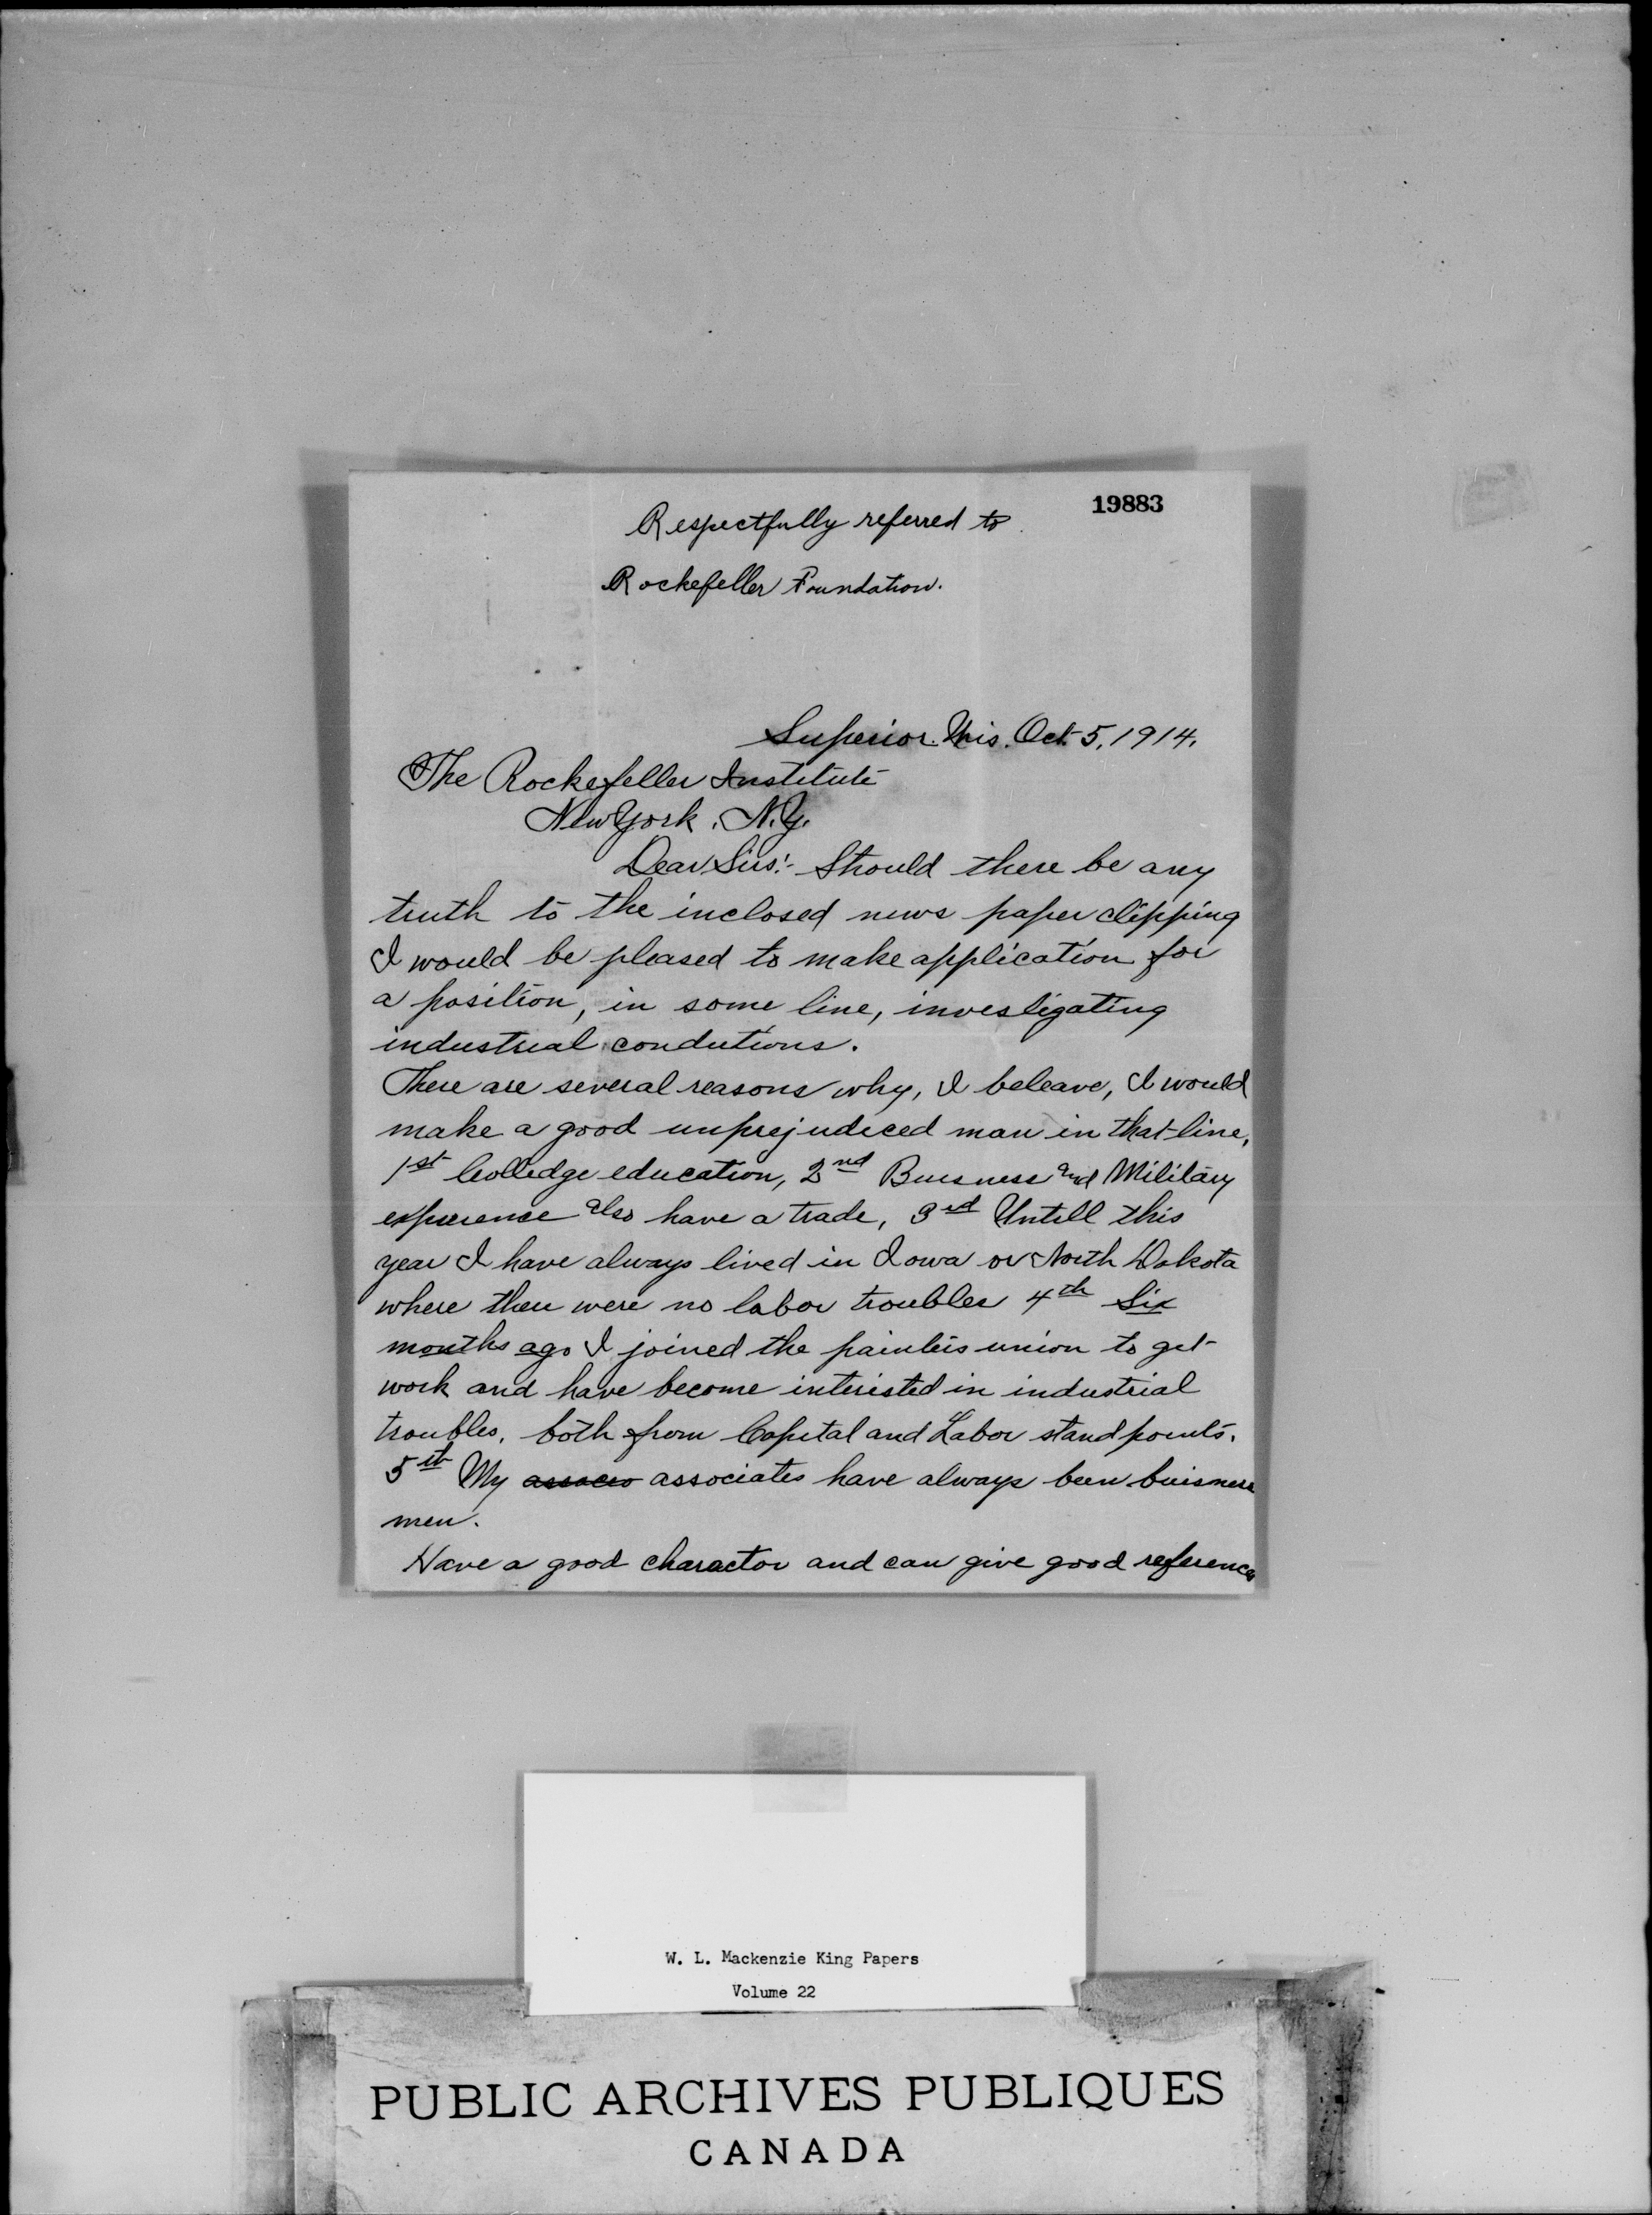 19883
Respectfully referred to
Rockefeller Foundation.
Superior. Wis. Oct. 5, 1914.
The Rockefeller Institute
New York. N.Y.
Dear Sirs:- Should there be any
truth to the inclosed news paper clipping
I would be pleased to make application for
a position, in some line, investigating
industrial condutions.
There are several reasons why, I beleave, I would
make a good unprejudiced man in that line,
1st Colledge education, 2nd Buisness and Military
experience also have a trade, 3rd Untill this
year I have always lived in Iowa or North Dakota
where there were no labor troubles 4th Six
months ago I joined the painters union to get
work and have become interested in industrial
troubles, both from Capital and Labor stand points.
5th My associates have always been buisness
men.
Have a good charactor and can give good references
W. L. Mackenzie King Papers
Volume 22
PUBLIC ARCHIVES PUBLIQUES
CANADA